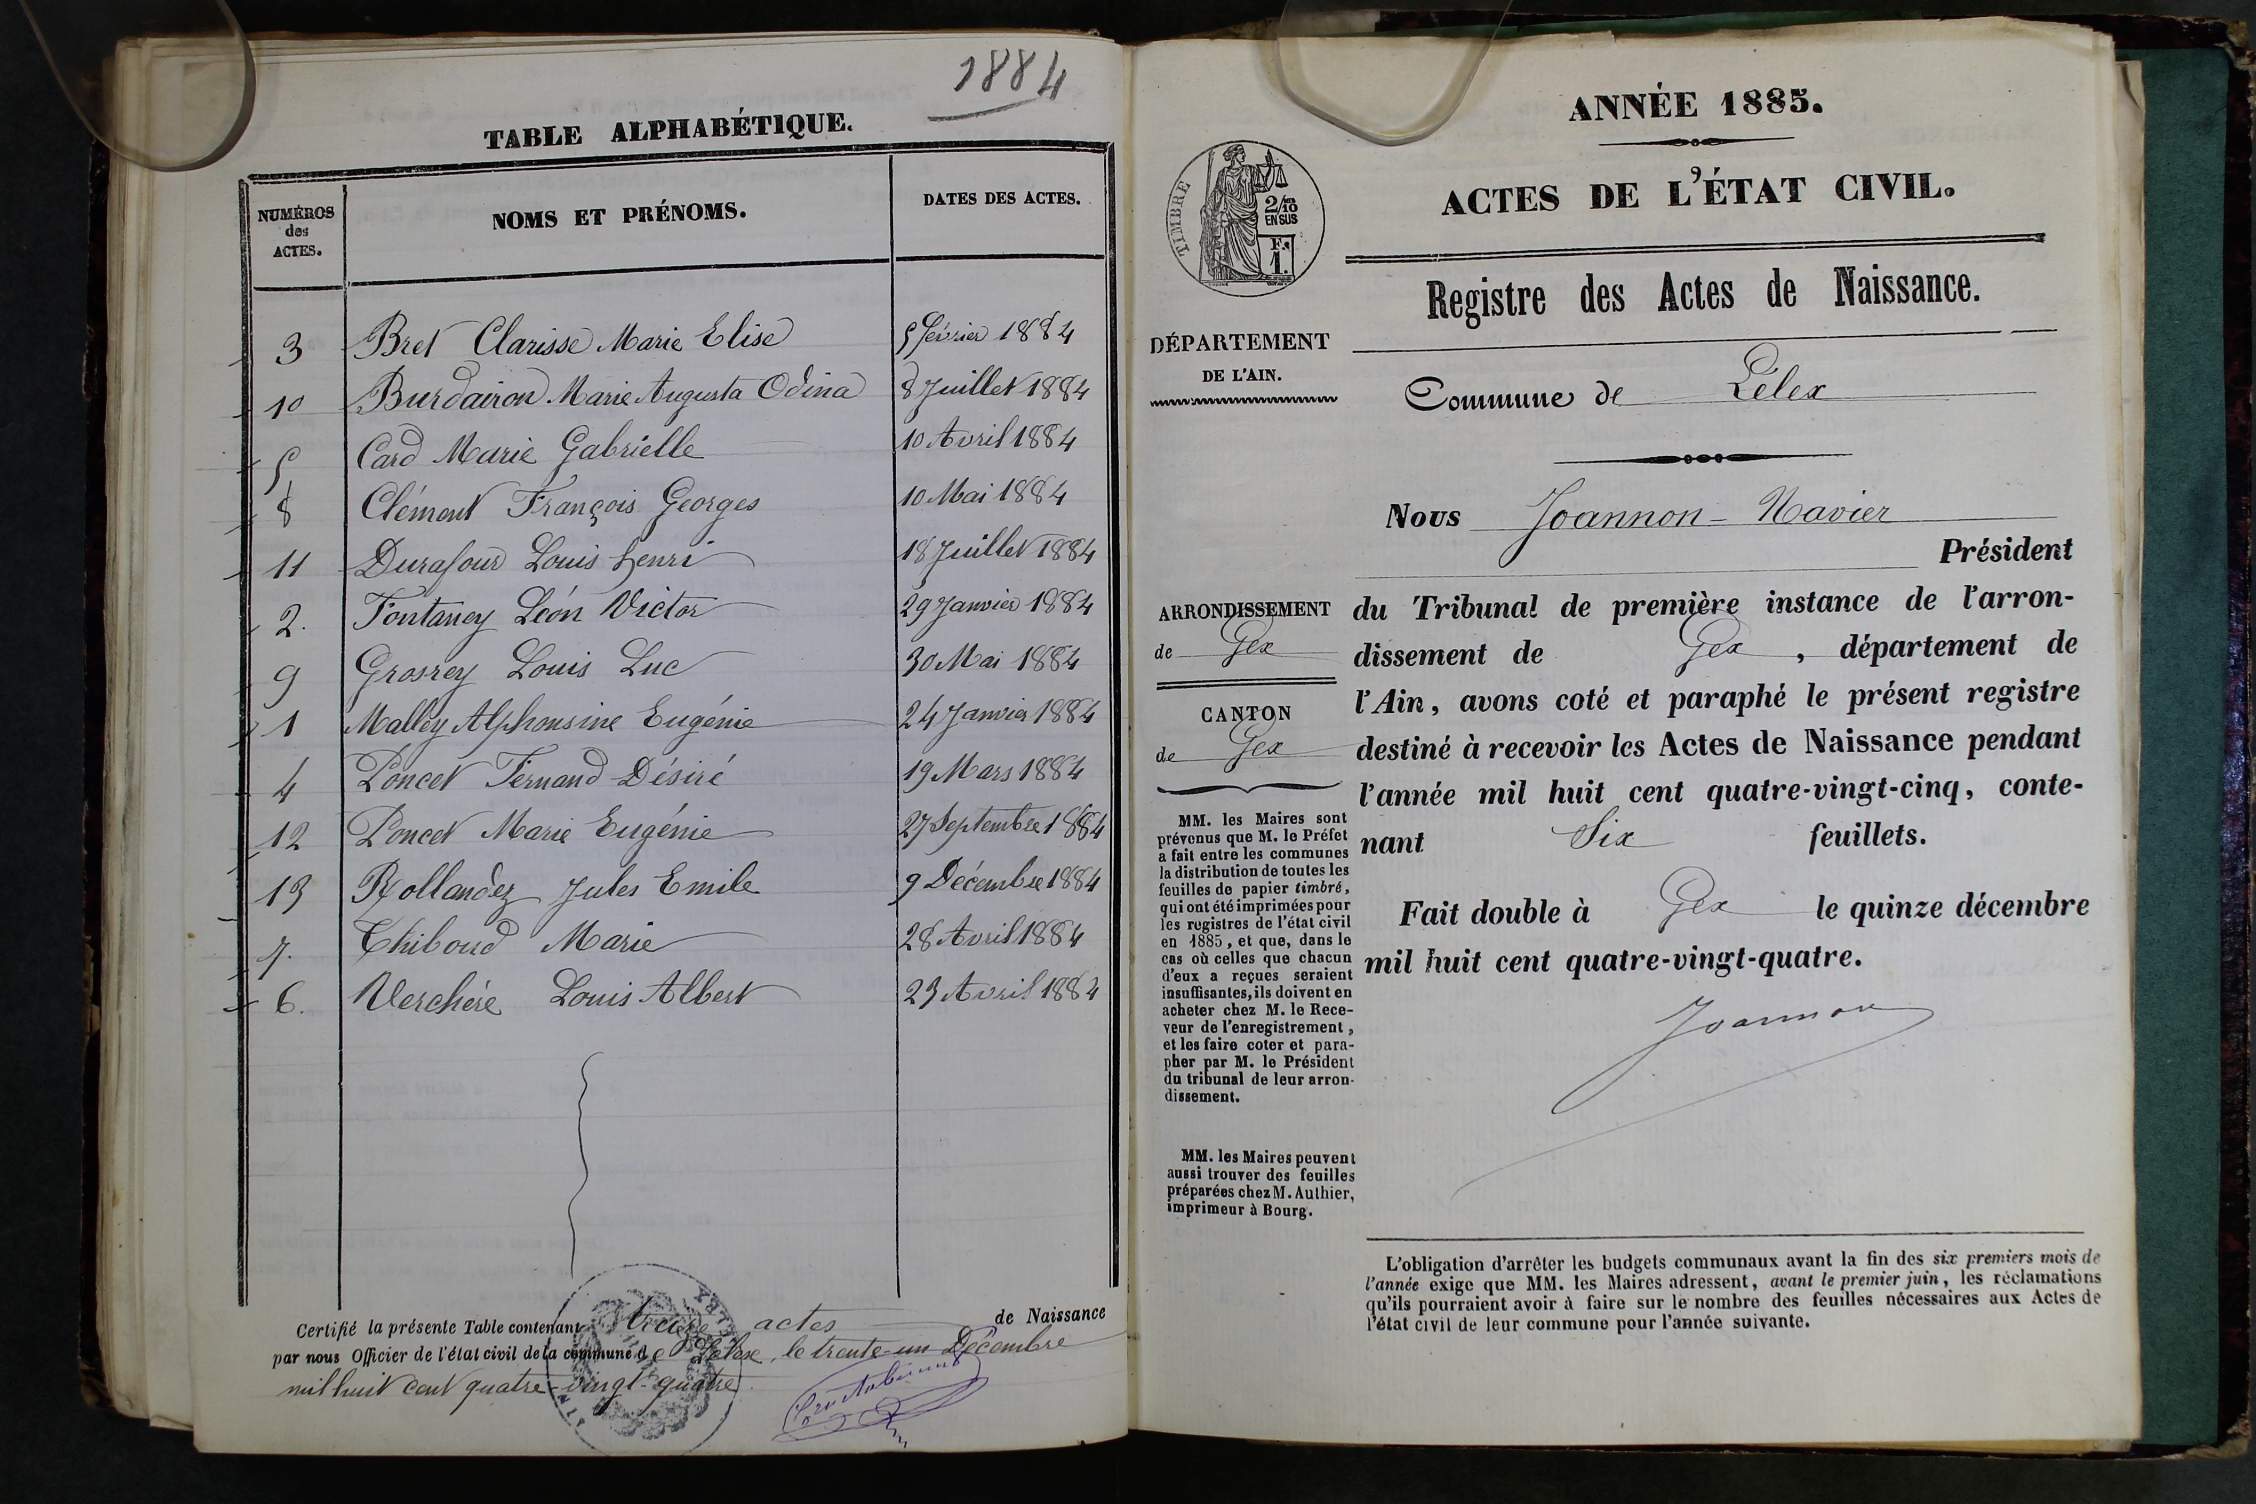 1884
TABLE ALPHABÉTIQUE.
NUMÉROS
des
ACTES.
NOMS ET PRÉNOMS.
DATES DES ACTES.
3 Bret Clarisse Marie Elise 5 février 1884
10 Burdairon Marie Augusta Odina 8 Juillet 1884
5 Card Marie Gabrielle 10 Avril 1884
8 Clément François Georges 10 Mai 1884
11 Durafour Louis henri 18 Juillet 1884
2. Fontaney Léon Victor 29 Janvier 1884
9 Grosrey Louis Luc 30 Mai 1884
1 Malley Alphonsine Eugénie 24 Janvier 1884
4 Poncet Fernand Désiré 19 Mars 1884
12 Poncet Marie Eugénie 27 Septembre 1884
13 Rollandez Jules Emile 9 Décembre 1884
7. Thiboud Marie 28 Avril 1884
6. Verchère Louis Albert 23 Avril 1884
Certifié la présente Table contenant treize actes de Naissance
par nous Officier de l'état civil de la commune de Lélex, le trente-un Décembre
mil huit cent quatre-vingt-quatre
ANNÉE 1885.
ACTES DE L'ÉTAT CIVIL.
TIMBRE
2/10 EN SUS
F. 1.
Registre des Actes de Naissance.
DÉPARTEMENT
DE L'AIN.
Commune de Lélex
Nous Joannon-Navier
Président
ARRONDISSEMENT
de Gex
CANTON
de Gex
du Tribunal de première instance de l'arron-
dissement de Gex, département de
l'Ain, avons coté et paraphé le présent registre
destiné à recevoir les Actes de Naissance pendant
l'année mil huit cent quatre-vingt-cinq, conte-
nant Six feuillets.
Fait double à Gex le quinze décembre
mil huit cent quatre-vingt-quatre.
Joannon
MM. les Maires sont
prévenus que M. le Préfet
a fait entre les communes
la distribution de toutes les
feuilles de papier timbré,
qui ont été imprimées pour
les registres de l'état civil
en 1885, et que, dans le
cas où celles que chacun
d'eux a reçues seraient
insuffisantes, ils doivent en
acheter chez M. le Rece-
veur de l'enregistrement,
et les faire coter et para-
pher par M. le Président
du tribunal de leur arron-
dissement.
MM. les Maires peuvent
aussi trouver des feuilles
préparées chez M. Authier,
imprimeur à Bourg.
L'obligation d'arrêter les budgets communaux avant la fin des six premiers mois de
l'année exige que MM. les Maires adressent, avant le premier juin, les réclamations
qu'ils pourraient avoir à faire sur le nombre des feuilles nécessaires aux Actes de
l'état civil de leur commune pour l'année suivante.